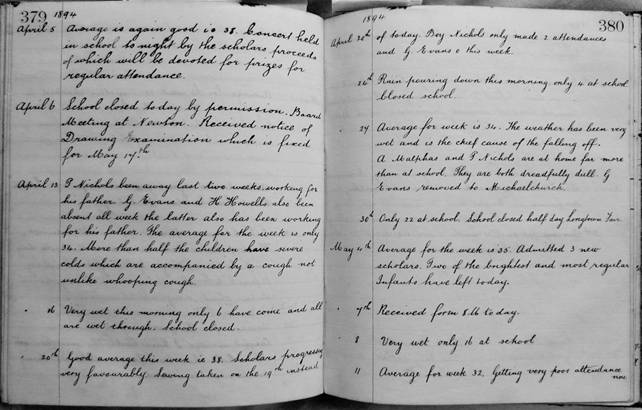 379 1894
April 5 Average is again good ie 38. Concert held
in school to night by the scholars proceeds
of which will be devoted for prizes for
regular attendance.
April 6 School closed today by permission. Board
Meeting at Newton. Received notice of
Drawing Examination which is fixed
for May 17.th
April 13 P Nichols been away last two weeks, working for
his father. G. Evans and H. Howells also been
absent all week the latter also has been working
for his father. The average for the week is only
34. More than half the children have severe
colds which are accompanied by a cough not
unlike whooping cough.
" 16 Very wet this morning only 6 have come and all
are wet through. School closed.
" 20th Good average this week ie 38. Scholars progressing
very favourably. Sewing taken on the 19th instead
1894 380
April 20th of today. Boy Nichols only made 2 attendances
and G. Evans 0 this week.
24th Rain pouring down this morning only 4 at school
Closed school.
" 27 Average for week is 34. The weather has been very
wet and is the chief cause of the falling off.
A. Malphas and P Nichols are at home far more
than at school. They are both dreadfully dull. G
Evans removed to Michaelchurch.
" 30th Only 22 at school. School closed half day Longtown Fair
May 4th Average for the week is 35. Admitted 3 new
scholars. Two of the brightest and most regular
Infants have left today.
" 7th Received form 8.16 today.
" 8 Very wet only 16 at school
" 11 Average for week 32. Getting very poor attendance
now